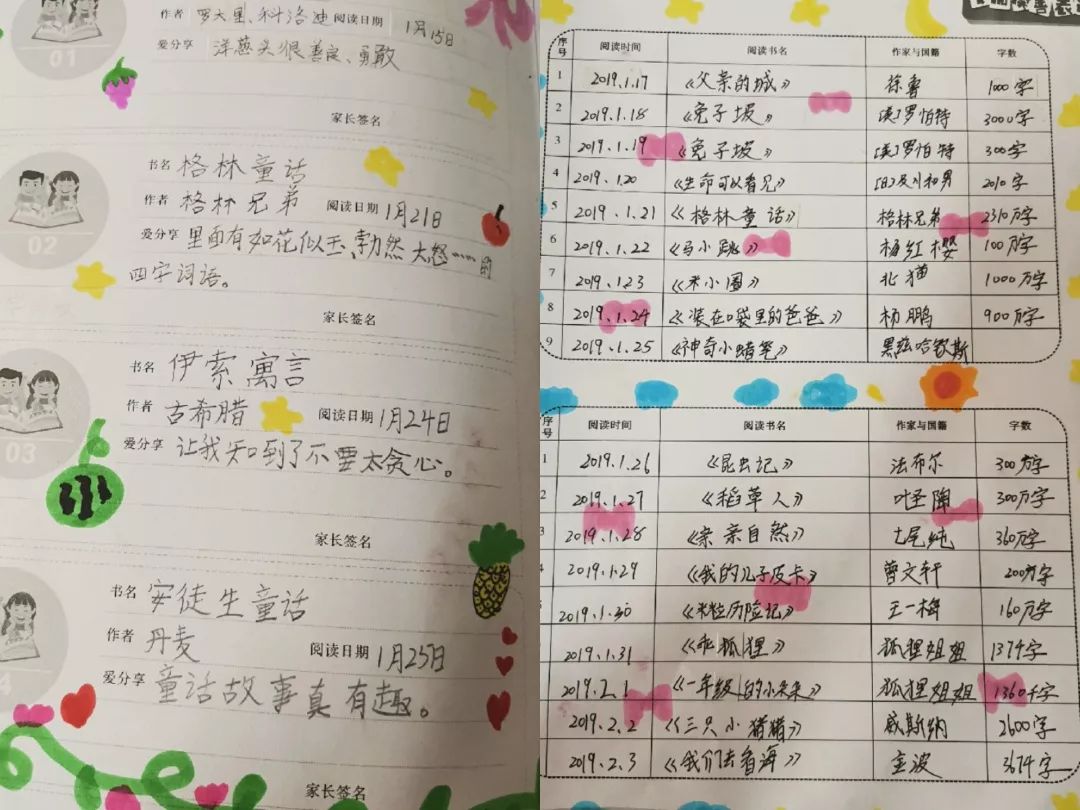 作者 罗大里、科洛迪 阅读日期 1月15日
01
爱分享 洋葱头很善良、勇敢
家长签名
书名 格林童话
作者 格林兄弟 阅读日期 1月21日
02
爱分享 里面有如花似玉、勃然大怒……的
四字词语。
家长签名
书名 伊索寓言
作者 古希腊 阅读日期 1月24日
03
爱分享 让我知到了不要太贪心。
小
家长签名
书名 安徒生童话
作者 丹麦 阅读日期 1月25日
4
爱分享 童话故事真有趣。
家长签名
序号 阅读时间 阅读书名 作家与国籍 字数
1 2019.1.17 《父亲的城》 徐鲁 1000字
2 2019.1.18 《兔子坡》 [美]罗伯特 3000字
3 2019.1.19 《兔子坡》 [美]罗伯特 300字
4 2019.1.20 《生命可以看见》 [日]及川和男 2010字
5 2019.1.21 《格林童话》 格林兄弟 2310万字
6 2019.1.22 《马小跳》 杨红樱 100万字
7 2019.1.23 《米小圈》 北猫 1000万字
8 2019.1.24 《装在口袋里的爸爸》 杨鹏 900万字
9 2019.1.25 《神奇小蜡笔》
序号 阅读时间 阅读书名 作家与国籍 字数
1 2019.1.26 《昆虫记》 法布尔 300万字
2 2019.1.27 《稻草人》 叶圣陶 300万字
3 2019.1.28 《亲亲自然》 七尾纯 360万字
2019.1.29 《我的儿子皮卡》 曹文轩 200万字
2019.1.30 《米粒历险记》 王一梅 160万字
2019.1.31 《乖狐狸》 狐狸姐姐 1374字
2019.2.1 《一年级的小朵朵》 狐狸姐姐 1360字
2019.2.2 《三只小猪猪》 威斯纳 2600字
2019.2.3 《我们去看海》 金波 3674字